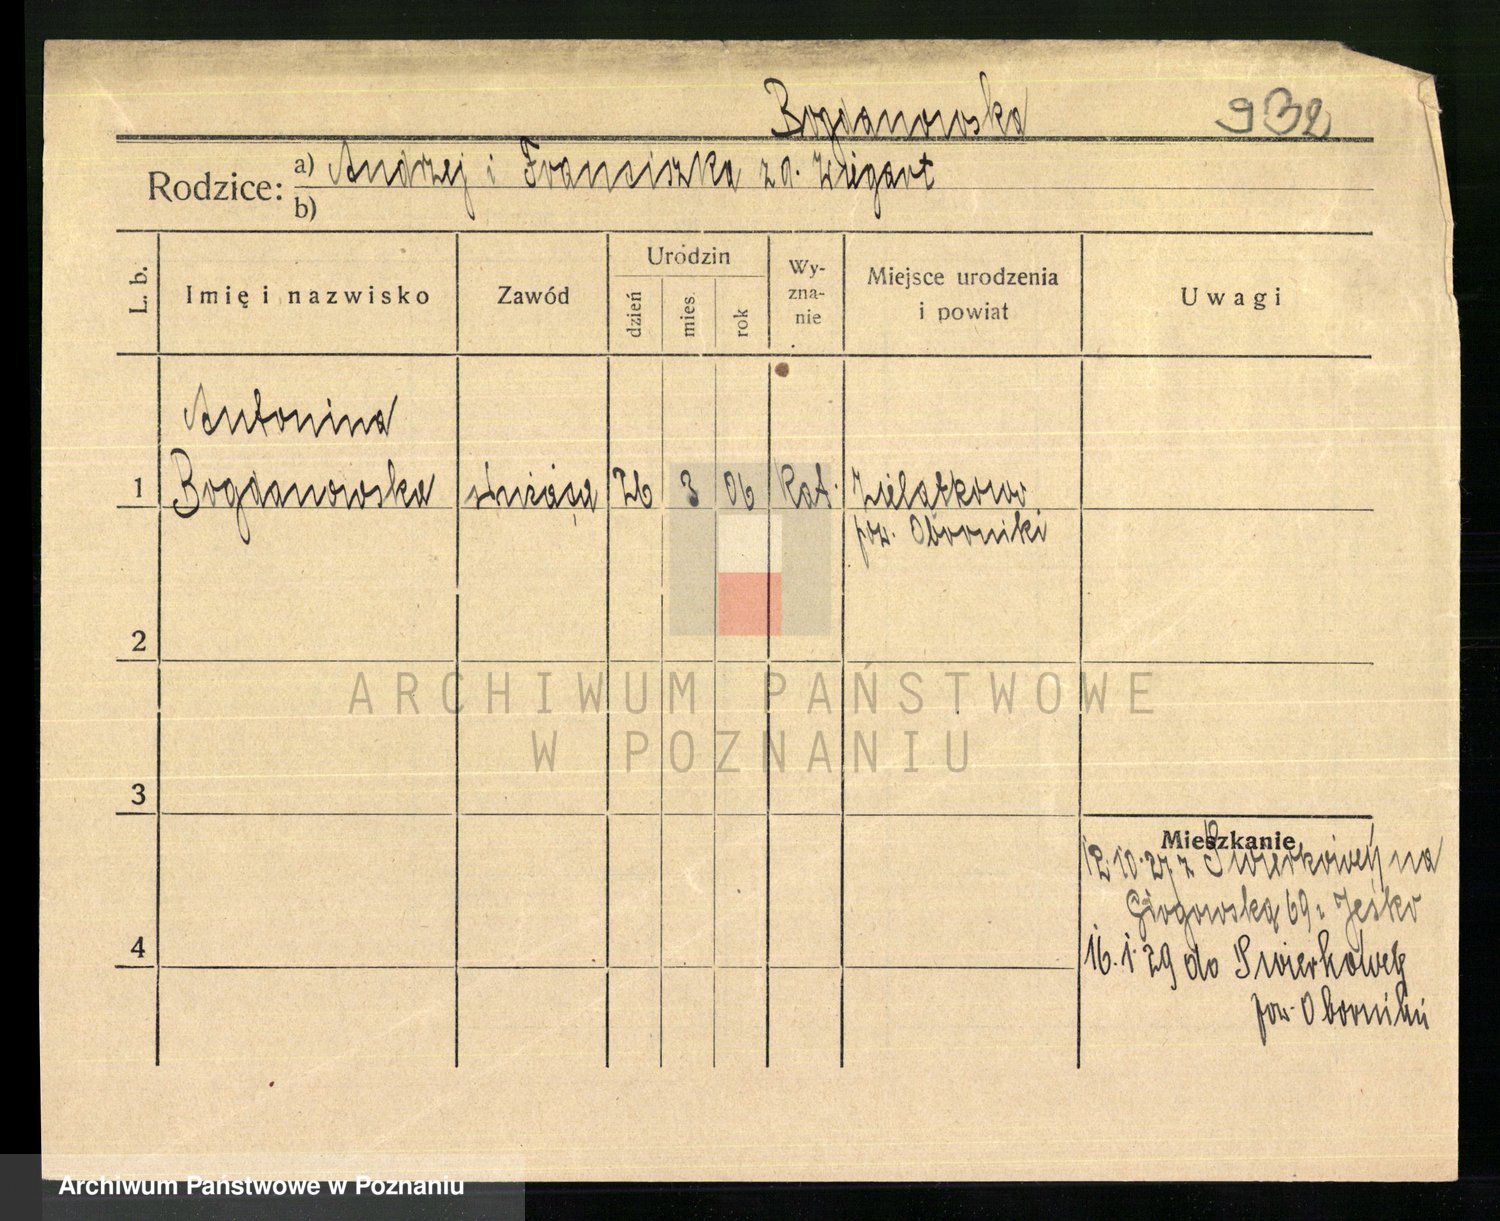 Bogdanowska 932
Rodzice: a) Andrzej i Franciszka zd. Wiegart
b)
L. b. Imię i nazwisko Zawód Urodzin dzień mies. rok Wy-zna-nie Miejsce urodzenia i powiat Uwagi
Antonina
1 Bogdanowska służąca 26 3 06 Kat. Zielątkowo
pow. Oborniki
2
ARCHIWUM PAŃSTWOWE
W POZNANIU
3
Mieszkanie
12.10.27 z Świerkówek na
Głogowską 69 : Jeśko
4
16.1.29 do Świerkówek
pow. Oborniki
Archiwum Państwowe w Poznaniu